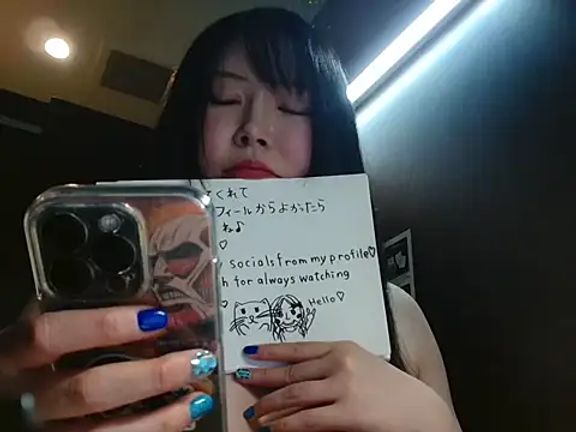 くれて
フィールからよかったら
ね♪
♡
socials from my profile♡
for always watching
♡
Hello♡